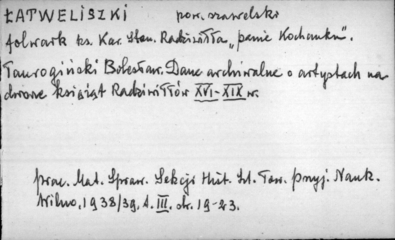 ŁATWELISZKI pow. szawelski
folwark ks. Kar. Stan. Radziwiłła „panie Kochanku".
Taurogiński Bolesław. Dane archiwalne o artystach na
dworze książąt Radziwiłłów XVI-XIX w.
Prac. Mat. Spraw. Sekcji Hist. Szt. Tow. Przyj. Nauk.
Wilno, 1938/39, t. III. str. 19-23.